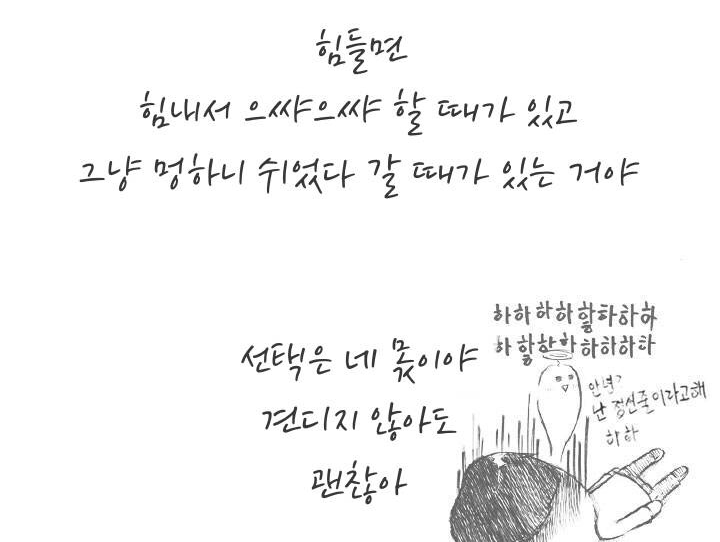 힘들면
힘내서 으쌰으쌰 할 때가 있고
그냥 멍하니 쉬었다 갈 때가 있는 거야
선택은 네 몫이야
견디지 않아도
괜찮아
하하하하핳하하하
하핳하하하하하하
안녕?
난 정신줄이라고해
하하